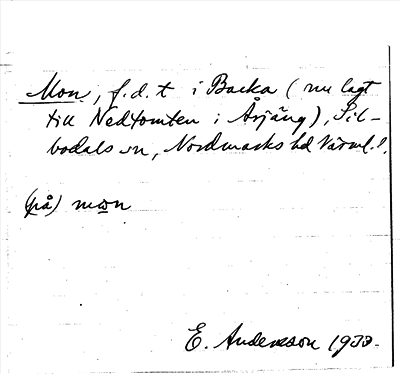 Mon, f.d. t i Backa (nu lagt
till Nedtomten i Årjäng), Sil-
bodals sn, Nordmarks hd Värml.
(på) mon
E. Andersson 1933.